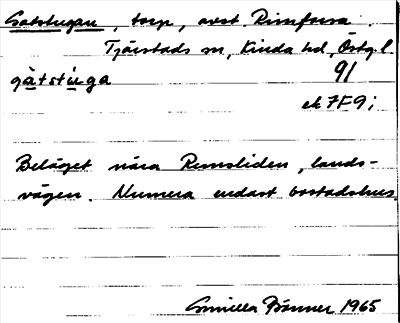 Gatstugan, torp, avst. Rimforsa.
Tjärstads sn, Kinda hd, Östg. l.
gàtstúga 91
ek 7F9i
Beläget nära Remsliden, lands-
vägen. Numera endast bostadshus.
Gunilla Bänner 1965